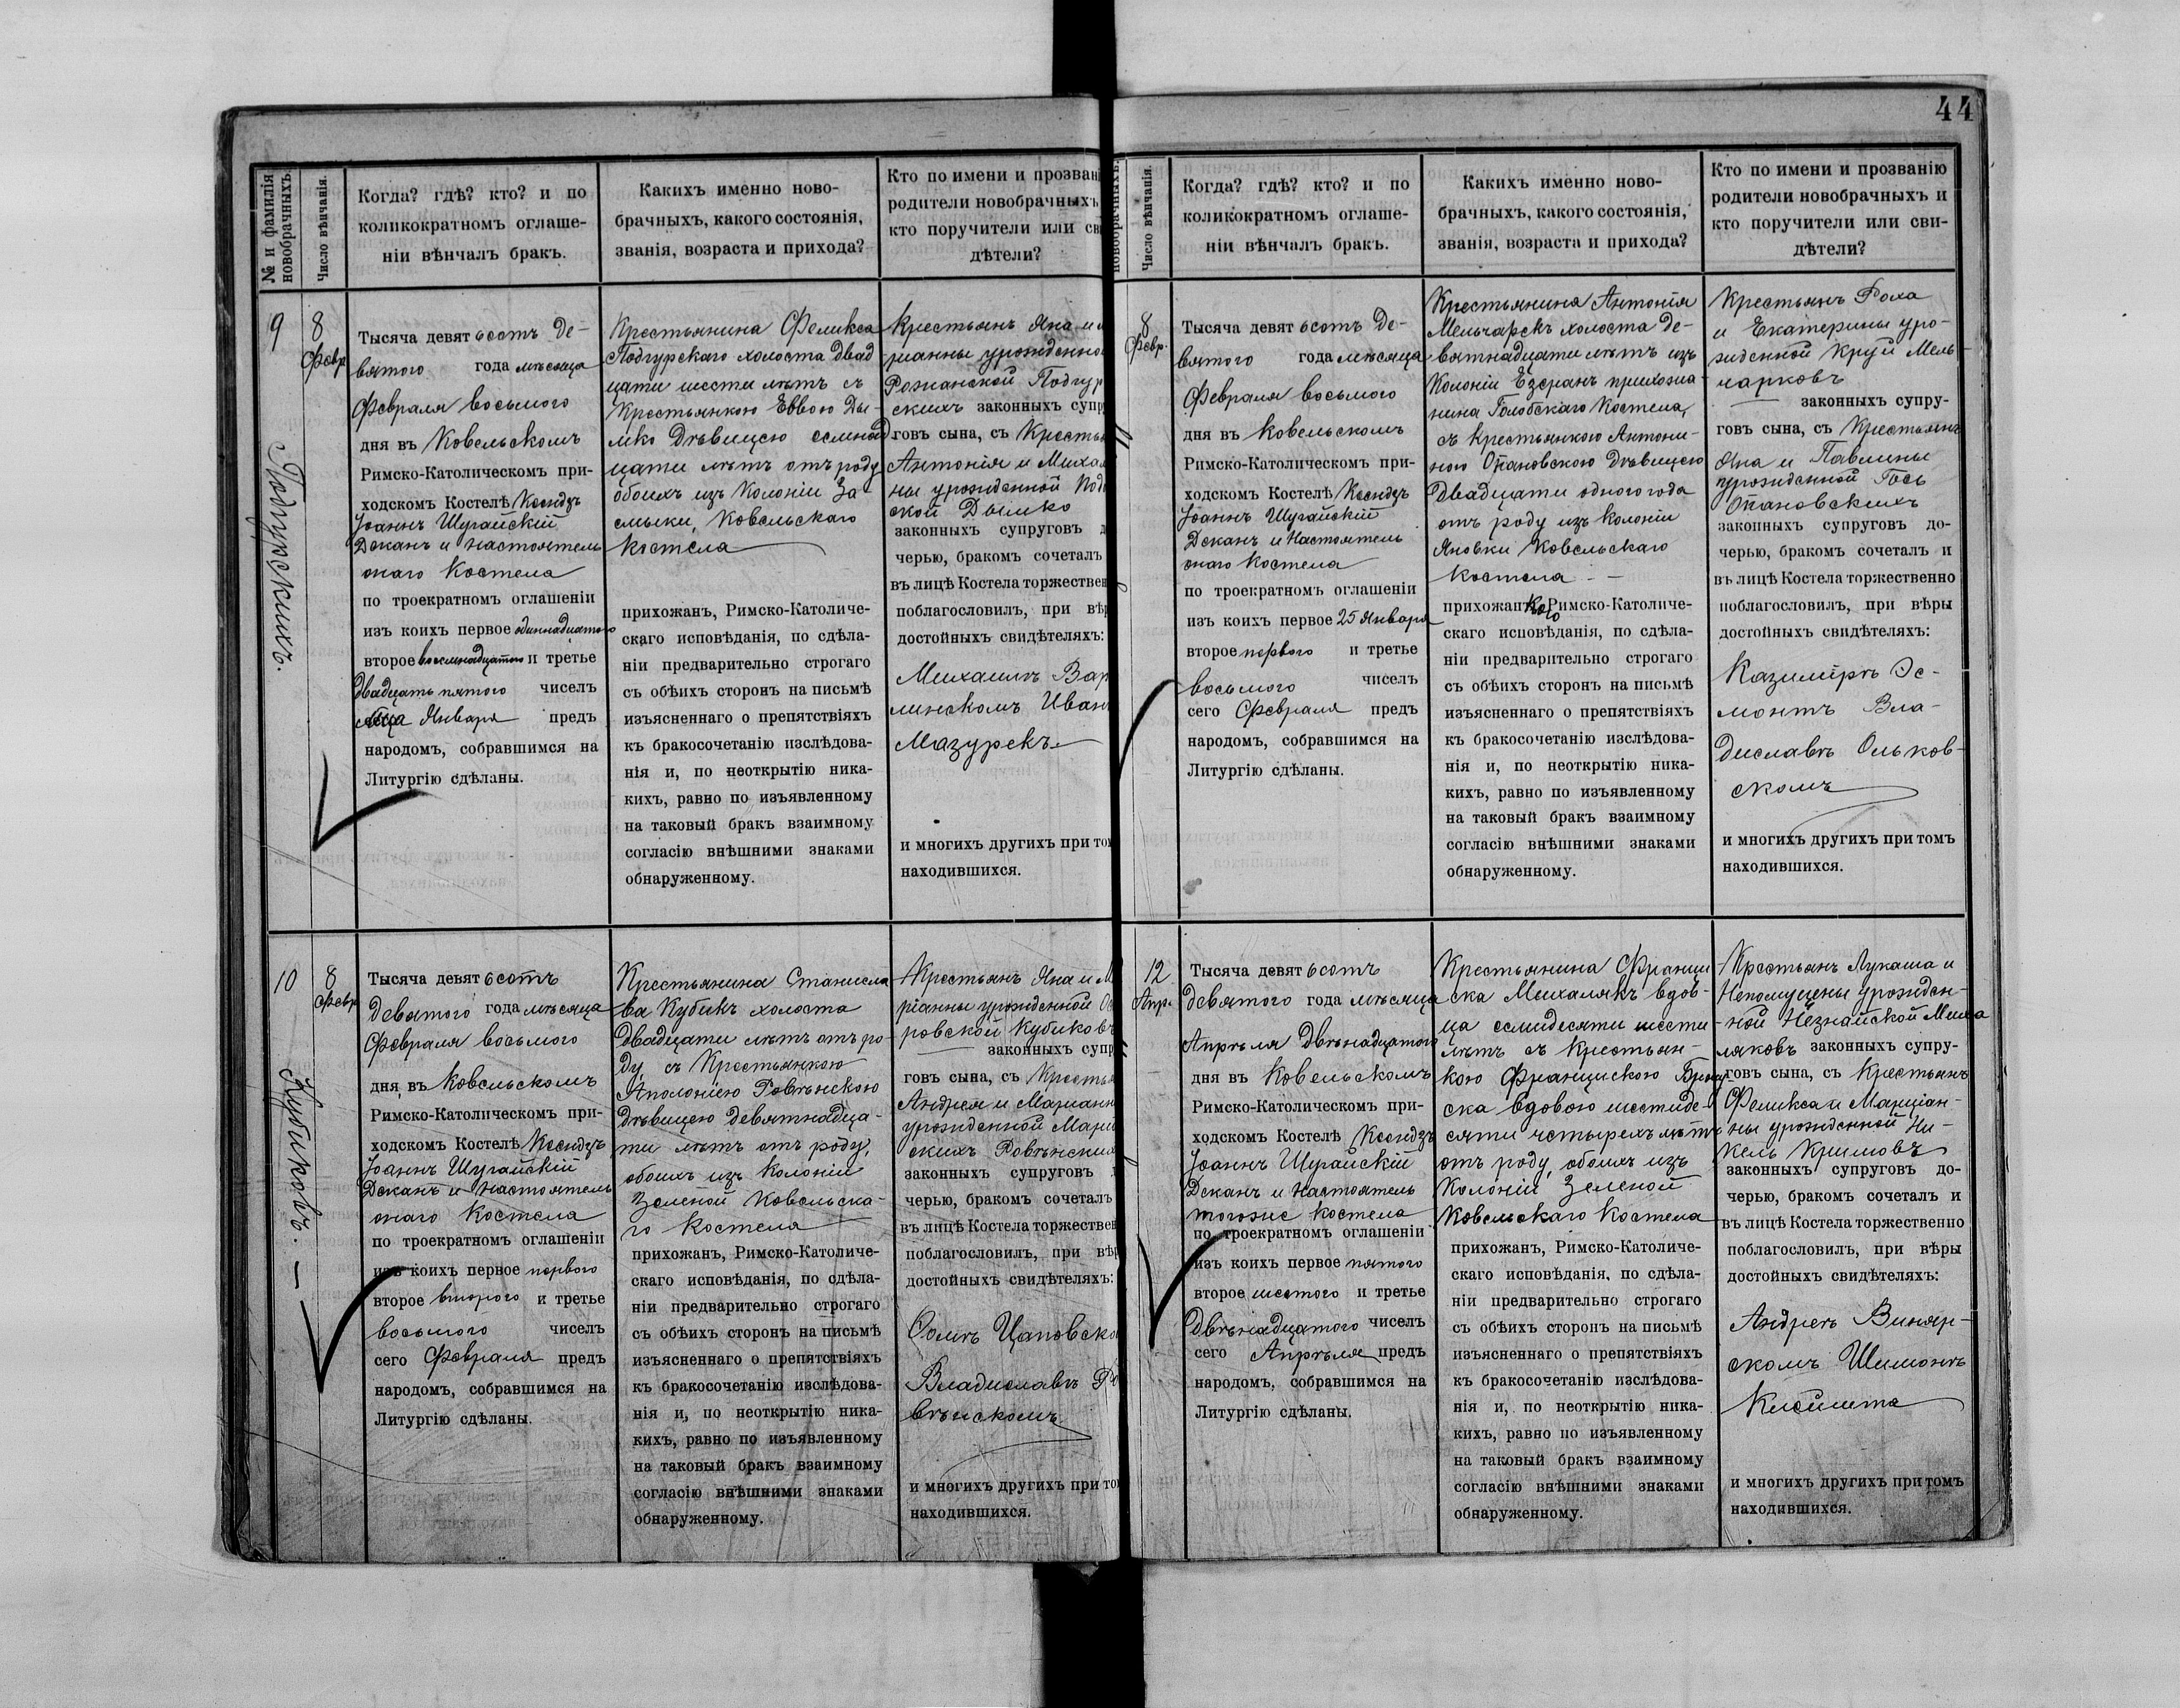 44
№ и фамилія
новобрачныхъ.
Число вѣнчанія.
Когда? гдѣ? кто? и по
коликократномъ оглаше-
ніи вѣнчалъ бракъ.
Какихъ именно ново-
брачныхъ, какого состоянія,
званія, возраста и прихода?
Кто по имени и прозван
родители новобрачныхъ
кто поручители или св
дѣтели?
9
Подгурскихъ.
8
Февр
Тысяча девятьсотъ де-
вятого года мѣсяца
Февраля восьмого
дня въ Ковельскомъ
Римско-Католическомъ при-
ходскомъ Костелѣ Ксендзъ
Іоаннъ Шугайскій
Деканъ и Настоятель
онаго Костела
по троекратномъ оглашеніи
изъ коихъ первое одиннадцатого
второе восемнадцатого и третье
двадцать пятого чиселъ
Января предъ
народомъ, собравшимся на
Литургію сдѣланы.
Крестьянина Феликса
Подгурскаго холоста двад
цати шести лѣтъ съ
Крестьянкою Еввою Ды-
лико дѣвицею семнад
цати лѣтъ отъ роду
обоихъ изъ Колоніи За-
смыки, Ковельскаго
Костела
прихожанъ, Римско-Католиче-
скаго исповѣданія, по сдѣла-
ніи предварительно строгаго
съ обѣихъ сторонъ на письмѣ
изъясненнаго о препятствіяхъ
къ бракосочетанію изслѣдова-
нія и, по неоткрытію ника-
кихъ, равно по изъявленному
на таковый бракъ взаимному
согласію внѣшними знаками
обнаруженному.
Крестьянъ Яна и
ріанны урожденно
Рожанской Подгур
скихъ законныхъ супр
говъ сына, съ Крестья
Антонія и Михал
ны урожденной Под
ской Дылико
законныхъ супруговъ д
черью, бракомъ сочеталъ
въ лицѣ Костела торжествен
поблагословилъ, при вѣр
достойныхъ свидѣтеляхъ:
Михаилѣ Вар
линскомъ Иван
Мазурекъ
и многихъ другихъ при то
находившихся.
10
Кубиковъ. —
8
Февр
Тысяча девятьсотъ
девятого года мѣсяца
Февраля восьмого
дня въ Ковельскомъ
Римско-Католическомъ при-
ходскомъ Костелѣ Ксендзъ
Іоаннъ Шугайскій
Деканъ и Настоятель
онаго Костела
по троекратномъ оглашеніи
изъ коихъ первое первого
второе второго и третье
восьмого чиселъ
сего Февраля предъ
народомъ, собравшимся на
Литургію сдѣланы.
Крестьянина Станисла
ва Кубикъ холоста
двадцати лѣтъ отъ ро-
ду, съ Крестьянкою
Аполоніею Ровѣнскою
дѣвицею девятнадца-
ти лѣтъ отъ роду,
обоихъ изъ Колоніи
Зеленой Ковельска-
го Костела
прихожанъ, Римско-Католиче-
скаго исповѣданія, по сдѣла-
ніи предварительно строгаго
съ обѣихъ сторонъ на письмѣ
изъясненнаго о препятствіяхъ
къ бракосочетанію изслѣдова-
нія и, по неоткрытію ника-
кихъ, равно по изъявленному
на таковый бракъ взаимному
согласію внѣшними знаками
обнаруженному.
Крестьянъ Яна и М
ріанны урожденной Ос
ровской Кубиковъ
законныхъ супр
говъ сына, съ Крестья
Андрея и Марианн
урожденной Мари
скихъ Ровѣнских
законныхъ супруговъ д
черью, бракомъ сочеталъ
въ лицѣ Костела торжествен
поблагословилъ, при вѣр
достойныхъ свидѣтеляхъ:
Фомѣ Цаповско
Владиславѣ Ро
вѣнскомъ
и многихъ другихъ при то
находившихся.
новобрачныхъ.
Число вѣнчанія.
Когда? гдѣ? кто? и по
коликократномъ оглаше-
ніи вѣнчалъ бракъ.
Какихъ именно ново-
брачныхъ, какого состоянія,
званія, возраста и прихода?
Кто по имени и прозванію
родители новобрачныхъ и
кто поручители или сви-
дѣтели?
8
Февр.
Тысяча девятьсотъ де-
вятого года мѣсяца
Февраля восьмого
дня въ Ковельскомъ
Римско-Католическомъ при-
ходскомъ Костелѣ Ксендзъ
Іоаннъ Шугайскій
Деканъ и Настоятель
онаго Костела
по троекратномъ оглашеніи
изъ коихъ первое 25 Января
второе первого и третье
восьмого чиселъ
сего Февраля предъ
народомъ, собравшимся на
Литургію сдѣланы.
Крестьянина Антонія
Мельчарекъ холоста де-
вятнадцати лѣтъ изъ
Колоніи Езеранъ прихожа-
нина Голобскаго Костела,
съ Крестьянкою Антони-
ною Опановскою дѣвицею
двадцати одного года
отъ роду изъ Колоніи
Яновки Ковельскаго
Костела
прихожан Римско-Католиче-
скаго исповѣданія, по сдѣла-
ніи предварительно строгаго
съ обѣихъ сторонъ на письмѣ
изъясненнаго о препятствіяхъ
къ бракосочетанію изслѣдова-
нія и, по неоткрытію ника-
кихъ, равно по изъявленному
на таковый бракъ взаимному
согласію внѣшними знаками
обнаруженному.
Крестьянъ Роха
и Екатерины уро-
жденной Круй Мель-
чарковъ
законныхъ супру-
говъ сына, съ Крестьянъ
Яна и Павлины
урожденной Гось
Опановскихъ
законныхъ супруговъ до-
черью, бракомъ сочеталъ и
въ лицѣ Костела торжественно
поблагословилъ, при вѣры
достойныхъ свидѣтеляхъ:
Казимірѣ Эс-
монтъ Вла-
диславѣ Ольков-
скомъ
и многихъ другихъ при томъ
находившихся.
12
Апр.
Тысяча девятьсотъ
девятого года мѣсяца
Апрѣля двѣнадцатого
дня въ Ковельскомъ
Римско-Католическомъ при-
ходскомъ Костелѣ Ксендзъ
Іоаннъ Шугайскій
Деканъ и Настоятель
тогоже Костела
по троекратномъ оглашеніи
изъ коихъ первое пятого
второе шестого и третье
двѣнадцатого чиселъ
сего Апрѣля предъ
народомъ, собравшимся на
Литургію сдѣланы.
Крестьянина Франци
ска Михалякъ вдов-
ца семидесяти шести
лѣтъ съ Крестьян-
кою Францискою
ска вдовою шестиде-
сяти четырехъ лѣтъ
отъ роду, обоихъ изъ
Колоніи Зеленой
Ковельскаго Костела
прихожанъ, Римско-Католиче-
скаго исповѣданія, по сдѣла-
ніи предварительно строгаго
съ обѣихъ сторонъ на письмѣ
изъясненнаго о препятствіяхъ
къ бракосочетанію изслѣдова-
нія и, по неоткрытію ника-
кихъ, равно по изъявленному
на таковый бракъ взаимному
согласію внѣшними знаками
обнаруженному.
Крестьянъ Лукаша и
Непомуцены урожден-
ной Незнайской Миха
ляковъ законныхъ супру-
говъ сына, съ Крестьянъ
Феликса и Марціан-
ны урожденной Ни-
кель Кришовъ
законныхъ супруговъ до-
черью, бракомъ сочеталъ и
въ лицѣ Костела торжественно
поблагословилъ, при вѣры
достойныхъ свидѣтеляхъ:
Андреѣ Виняр-
скомъ Шимонѣ
и многихъ другихъ при томъ
находившихся.